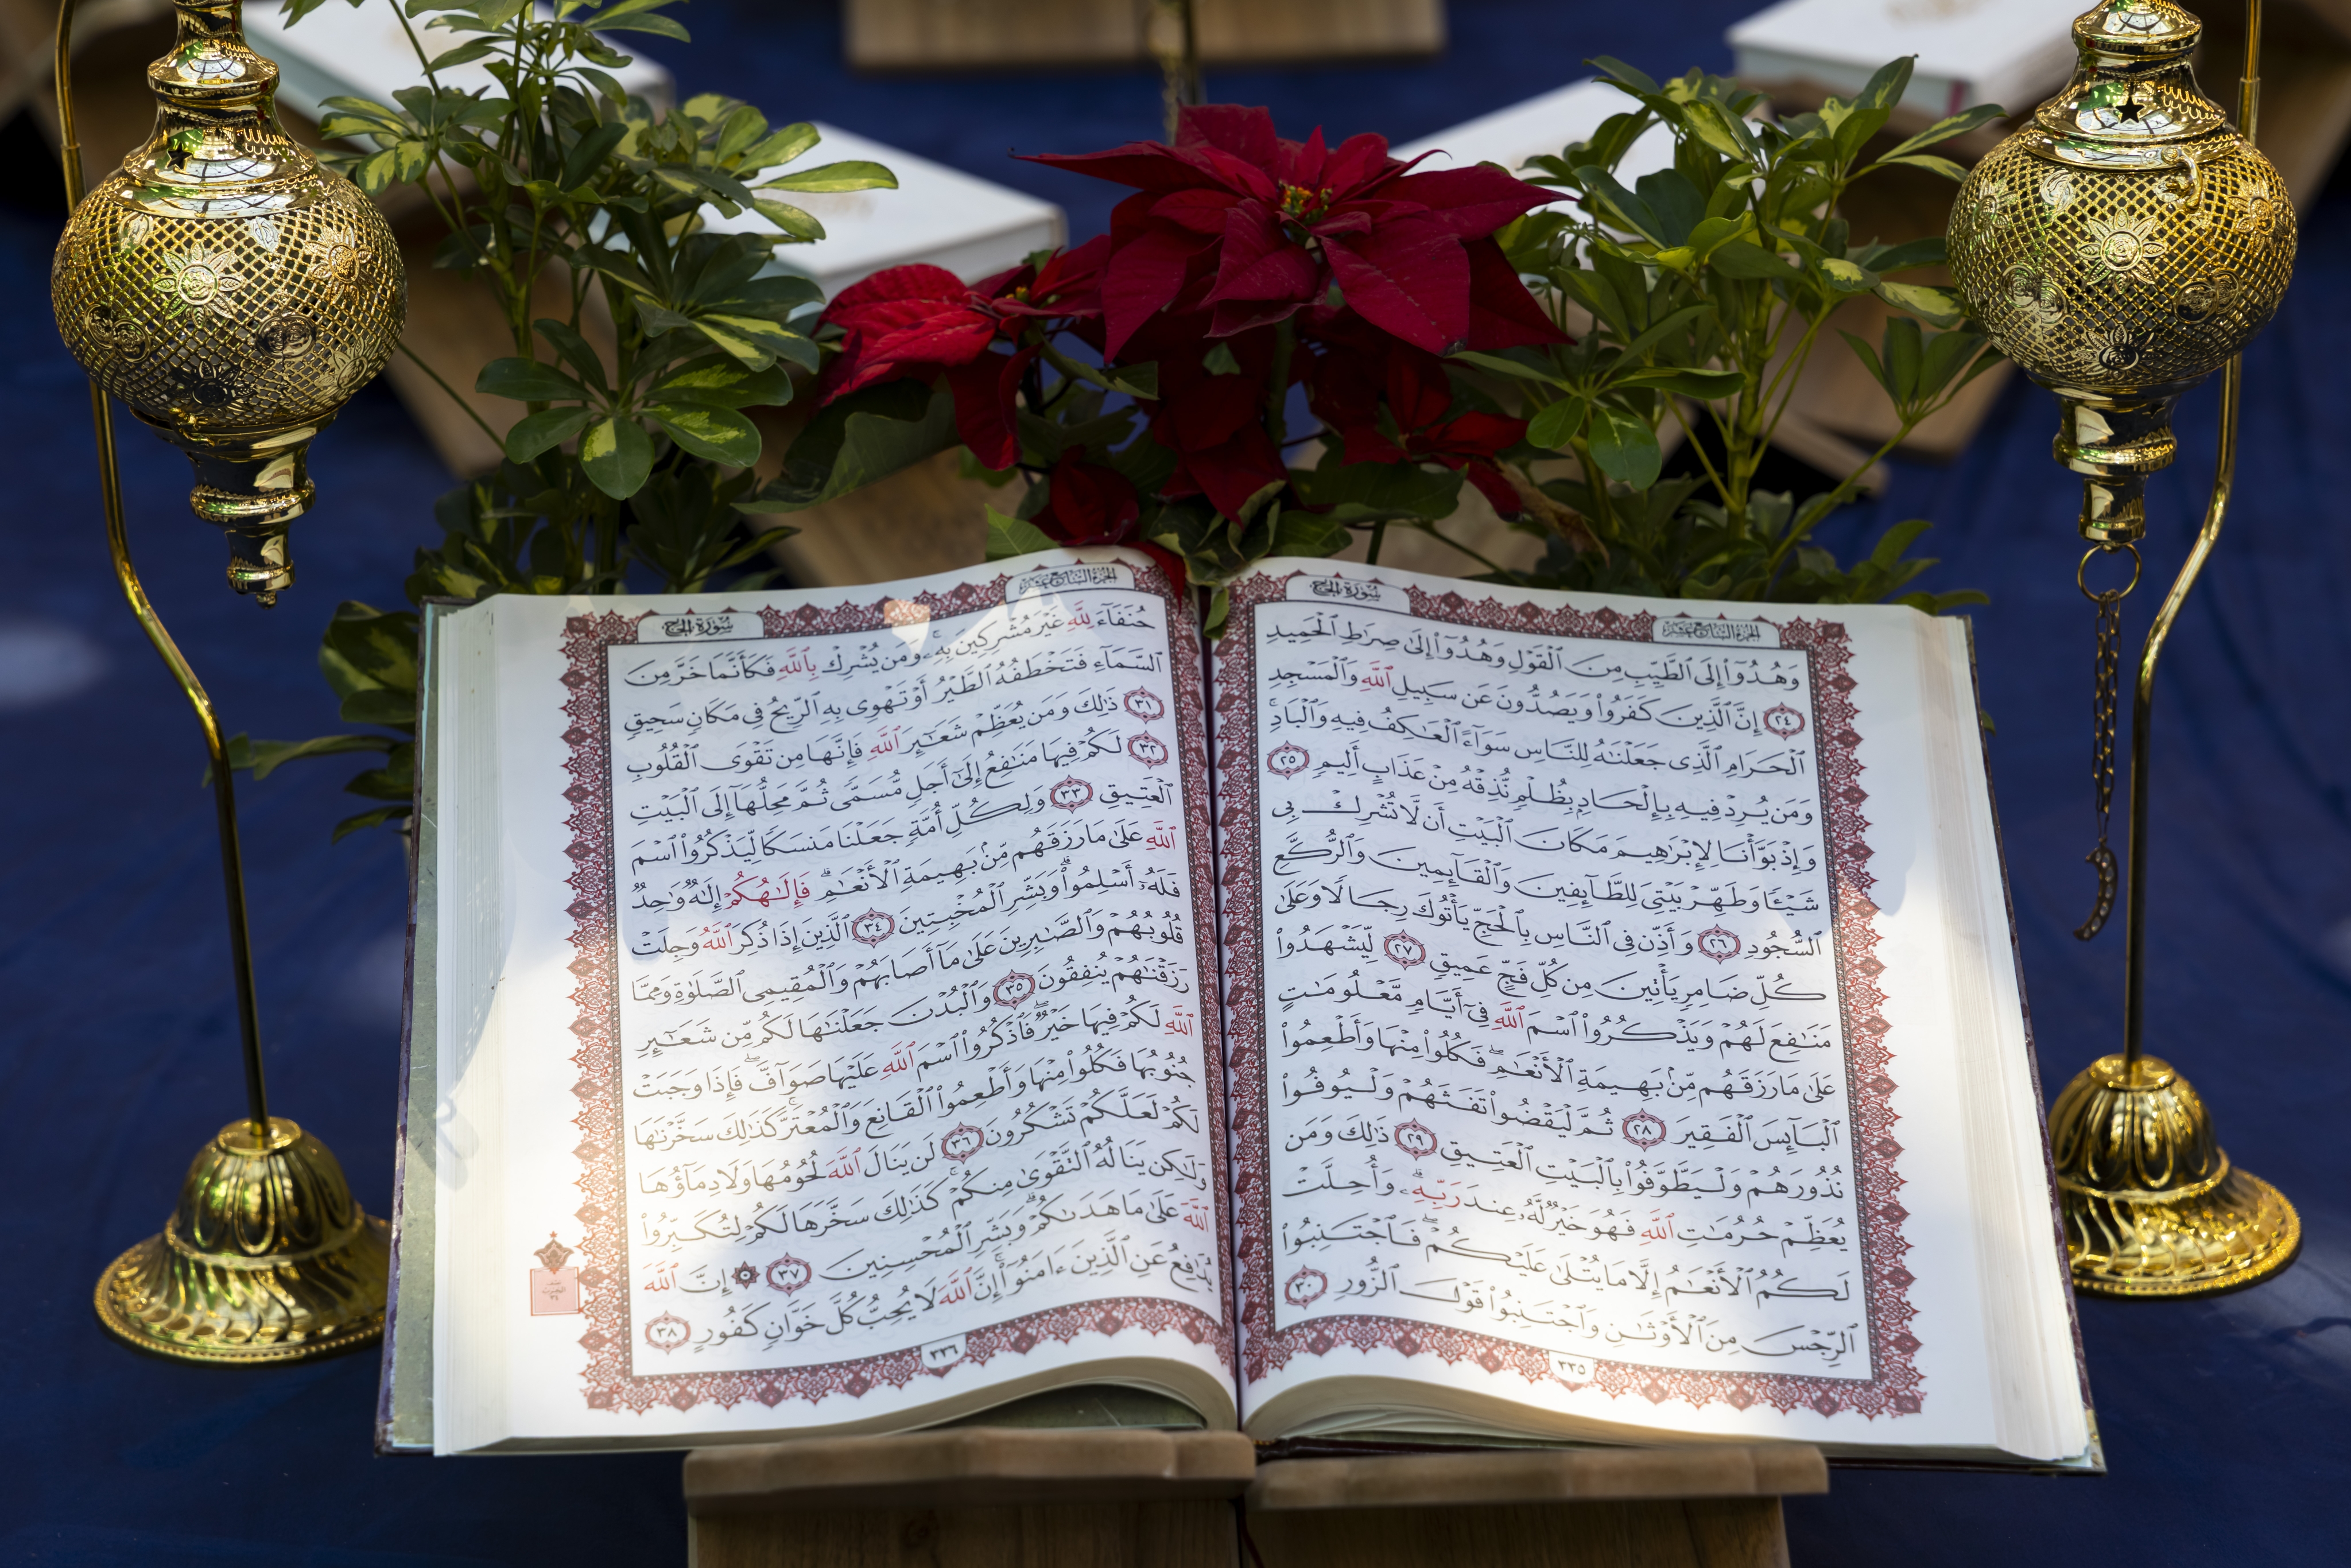 الجُزْءُ السَّابِعُ عَشَرَ
سُورَةُ الحَجِّ
وَهُدُوٓا۟ إِلَى ٱلطَّيِّبِ مِنَ ٱلْقَوْلِ وَهُدُوٓا۟ إِلَىٰ صِرَٰطِ ٱلْحَمِيدِ
٢٤ إِنَّ ٱلَّذِينَ كَفَرُوا۟ وَيَصُدُّونَ عَن سَبِيلِ ٱللَّهِ وَٱلْمَسْجِدِ
ٱلْحَرَامِ ٱلَّذِى جَعَلْنَٰهُ لِلنَّاسِ سَوَآءً ٱلْعَٰكِفُ فِيهِ وَٱلْبَادِ ۚ
وَمَن يُرِدْ فِيهِ بِإِلْحَادٍۭ بِظُلْمٍ نُّذِقْهُ مِنْ عَذَابٍ أَلِيمٍ ٢٥
وَإِذْ بَوَّأْنَا لِإِبْرَٰهِيمَ مَكَانَ ٱلْبَيْتِ أَن لَّا تُشْرِكْ بِى
شَيْـًٔا وَطَهِّرْ بَيْتِىَ لِلطَّآئِفِينَ وَٱلْقَآئِمِينَ وَٱلرُّكَّعِ
ٱلسُّجُودِ ٢٦ وَأَذِّن فِى ٱلنَّاسِ بِٱلْحَجِّ يَأْتُوكَ رِجَالًا وَعَلَىٰ
كُلِّ ضَامِرٍ يَأْتِينَ مِن كُلِّ فَجٍّ عَمِيقٍ ٢٧ لِّيَشْهَدُوا۟
مَنَٰفِعَ لَهُمْ وَيَذْكُرُوا۟ ٱسْمَ ٱللَّهِ فِىٓ أَيَّامٍ مَّعْلُومَٰتٍ
عَلَىٰ مَا رَزَقَهُم مِّنۢ بَهِيمَةِ ٱلْأَنْعَٰمِ ۖ فَكُلُوا۟ مِنْهَا وَأَطْعِمُوا۟
ٱلْبَآئِسَ ٱلْفَقِيرَ ٢٨ ثُمَّ لْيَقْضُوا۟ تَفَثَهُمْ وَلْيُوفُوا۟
نُذُورَهُمْ وَلْيَطَّوَّفُوا۟ بِٱلْبَيْتِ ٱلْعَتِيقِ ٢٩ ذَٰلِكَ وَمَن
يُعَظِّمْ حُرُمَٰتِ ٱللَّهِ فَهُوَ خَيْرٌ لَّهُۥ عِندَ رَبِّهِۦ ۗ وَأُحِلَّتْ
لَكُمُ ٱلْأَنْعَٰمُ إِلَّا مَا يُتْلَىٰ عَلَيْكُمْ ۖ فَٱجْتَنِبُوا۟
ٱلرِّجْسَ مِنَ ٱلْأَوْثَٰنِ وَٱجْتَنِبُوا۟ قَوْلَ ٱلزُّورِ ٣٠
٣٣٥
الجُزْءُ السَّابِعُ عَشَرَ
سُورَةُ الحَجِّ
حُنَفَآءَ لِلَّهِ غَيْرَ مُشْرِكِينَ بِهِۦ ۚ وَمَن يُشْرِكْ بِٱللَّهِ فَكَأَنَّمَا خَرَّ مِنَ
ٱلسَّمَآءِ فَتَخْطَفُهُ ٱلطَّيْرُ أَوْ تَهْوِى بِهِ ٱلرِّيحُ فِى مَكَانٍ سَحِيقٍ
٣١ ذَٰلِكَ وَمَن يُعَظِّمْ شَعَٰٓئِرَ ٱللَّهِ فَإِنَّهَا مِن تَقْوَى ٱلْقُلُوبِ
٣٢ لَكُمْ فِيهَا مَنَٰفِعُ إِلَىٰٓ أَجَلٍ مُّسَمًّى ثُمَّ مَحِلُّهَآ إِلَى ٱلْبَيْتِ
ٱلْعَتِيقِ ٣٣ وَلِكُلِّ أُمَّةٍ جَعَلْنَا مَنسَكًا لِّيَذْكُرُوا۟ ٱسْمَ
ٱللَّهِ عَلَىٰ مَا رَزَقَهُم مِّنۢ بَهِيمَةِ ٱلْأَنْعَٰمِ ۗ فَإِلَٰهُكُمْ إِلَٰهٌ وَٰحِدٌ
فَلَهُۥٓ أَسْلِمُوا۟ ۗ وَبَشِّرِ ٱلْمُخْبِتِينَ ٣٤ ٱلَّذِينَ إِذَا ذُكِرَ ٱللَّهُ وَجِلَتْ
قُلُوبُهُمْ وَٱلصَّٰبِرِينَ عَلَىٰ مَآ أَصَابَهُمْ وَٱلْمُقِيمِى ٱلصَّلَوٰةِ وَمِمَّا
رَزَقْنَٰهُمْ يُنفِقُونَ ٣٥ وَٱلْبُدْنَ جَعَلْنَٰهَا لَكُم مِّن شَعَٰٓئِرِ
ٱللَّهِ لَكُمْ فِيهَا خَيْرٌ ۖ فَٱذْكُرُوا۟ ٱسْمَ ٱللَّهِ عَلَيْهَا صَوَآفَّ ۖ فَإِذَا وَجَبَتْ
جُنُوبُهَا فَكُلُوا۟ مِنْهَا وَأَطْعِمُوا۟ ٱلْقَانِعَ وَٱلْمُعْتَرَّ ۚ كَذَٰلِكَ سَخَّرْنَٰهَا
لَكُمْ لَعَلَّكُمْ تَشْكُرُونَ ٣٦ لَن يَنَالَ ٱللَّهَ لُحُومُهَا وَلَا دِمَآؤُهَا
وَلَٰكِن يَنَالُهُ ٱلتَّقْوَىٰ مِنكُمْ ۚ كَذَٰلِكَ سَخَّرَهَا لَكُمْ لِتُكَبِّرُوا۟
ٱللَّهَ عَلَىٰ مَا هَدَىٰكُمْ ۗ وَبَشِّرِ ٱلْمُحْسِنِينَ ٣٧ إِنَّ ٱللَّهَ
يُدَٰفِعُ عَنِ ٱلَّذِينَ ءَامَنُوٓا۟ ۗ إِنَّ ٱللَّهَ لَا يُحِبُّ كُلَّ خَوَّانٍ كَفُورٍ ٣٨
٣٣٦